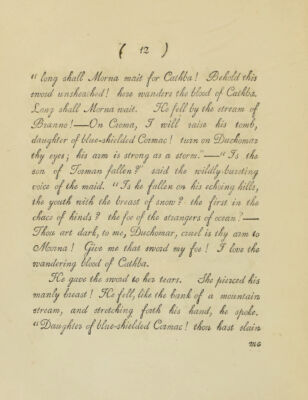 ( 12 )
"long shall Morna wait for Cathba! Behold this
sword unsheathed! here wanders the blood of Cathba.
Long shall Morna wait. He fell by the stream of
Branno!—On Croma, I will raise his tomb,
daughter of blue-shielded Cormac! turn on Duchomar
thy eyes; his arm is strong as a storm."—"Is the
son of Torman fallen?" said the wildly-bursting
voice of the maid. "Is he fallen on his echoing hills,
the youth with the breast of snow? the first in the
chace of hinds? the foe of the strangers of ocean?—
Thou art dark, to me, Duchomar, cruel is thy arm to
Morna! Give me that sword my foe! I love the
wandering blood of Cathba.
He gave the sword to her tears. She pierced his
manly breast! He fell, like the bank of a mountain
stream, and stretching forth his hand, he spoke.
"Daughter of blue-shielded Cormac! thou hast slain
me